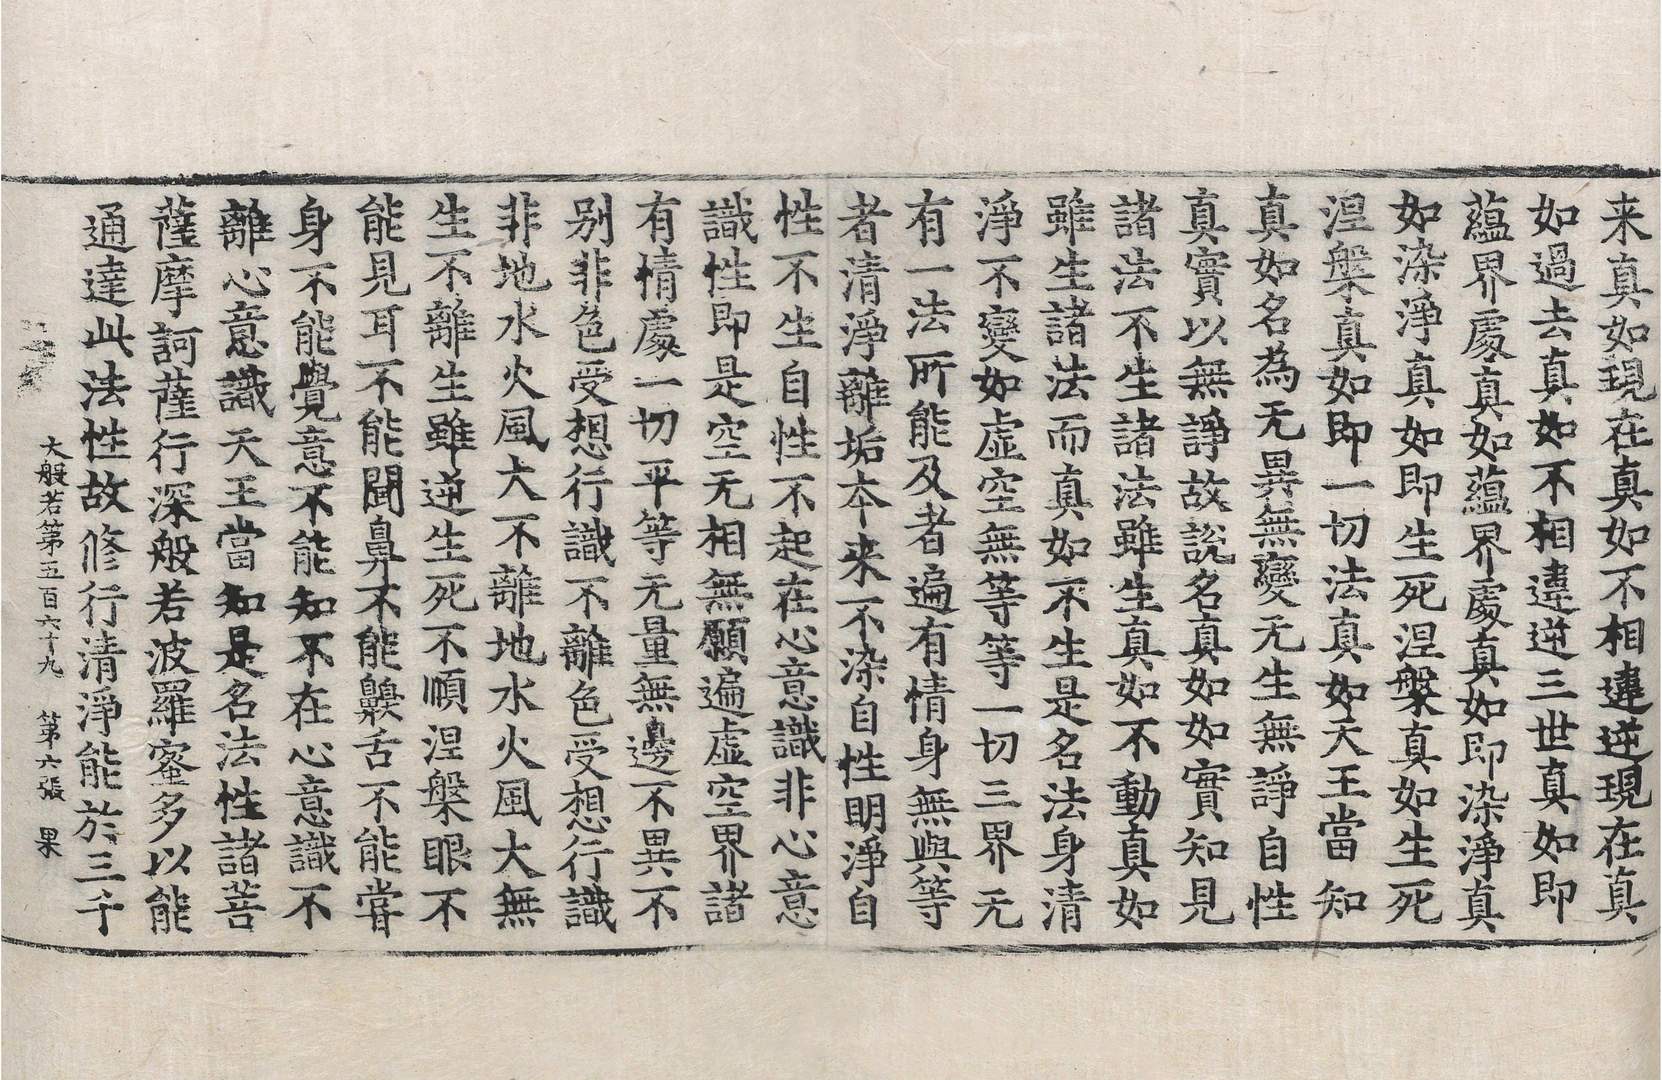 来真如現在真如不相違逆現在真
如過去真如不相違逆三世真如即
蘊界處真如蘊界處真如即染淨真
如染淨真如即生死涅槃真如生死
涅槃真如即一切法真如天王當知
真如名為无異無變无生無諍自性
真實以無諍故說名真如如實知見
諸法不生諸法雖生真如不動真如
雖生諸法而真如不生是名法身清
淨不變如虛空無等等一切三界无
有一法所能及者遍有情身無與等
者清淨離垢本来不染自性明淨自
性不生自性不起在心意識非心意
識性即是空无相無願遍虛空界諸
有情處一切平等无量無邊不異不
别非色受想行識不離色受想行識
非地水火風大不離地水火風大無
生不離生雖逆生死不順涅槃眼不
能見耳不能聞鼻不能齅舌不能甞
身不能覺意不能知不在心意識不
離心意識天王當知是名法性諸菩
薩摩訶薩行深般若波羅蜜多以能
通達此法性故修行清淨能於三千
大般若第五百六十九　第六張　果